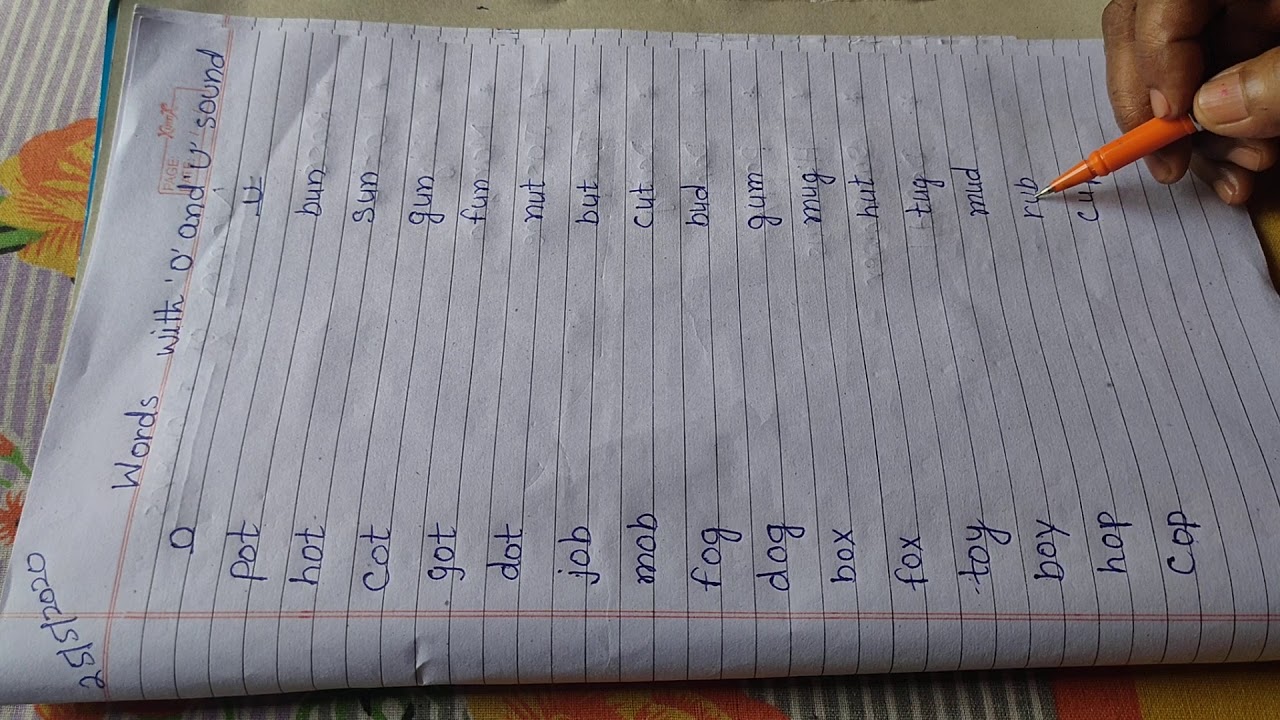 25/5/2020
PAGE
Words with 'O' and 'U' sound
O
pot
hot
cot
got
dot
job
mob
fog
dog
box
fox
toy
boy
hop
cop
U
bun
sun
gun
fun
nut
but
cut
bud
gum
mug
hut
tug
mud
rub